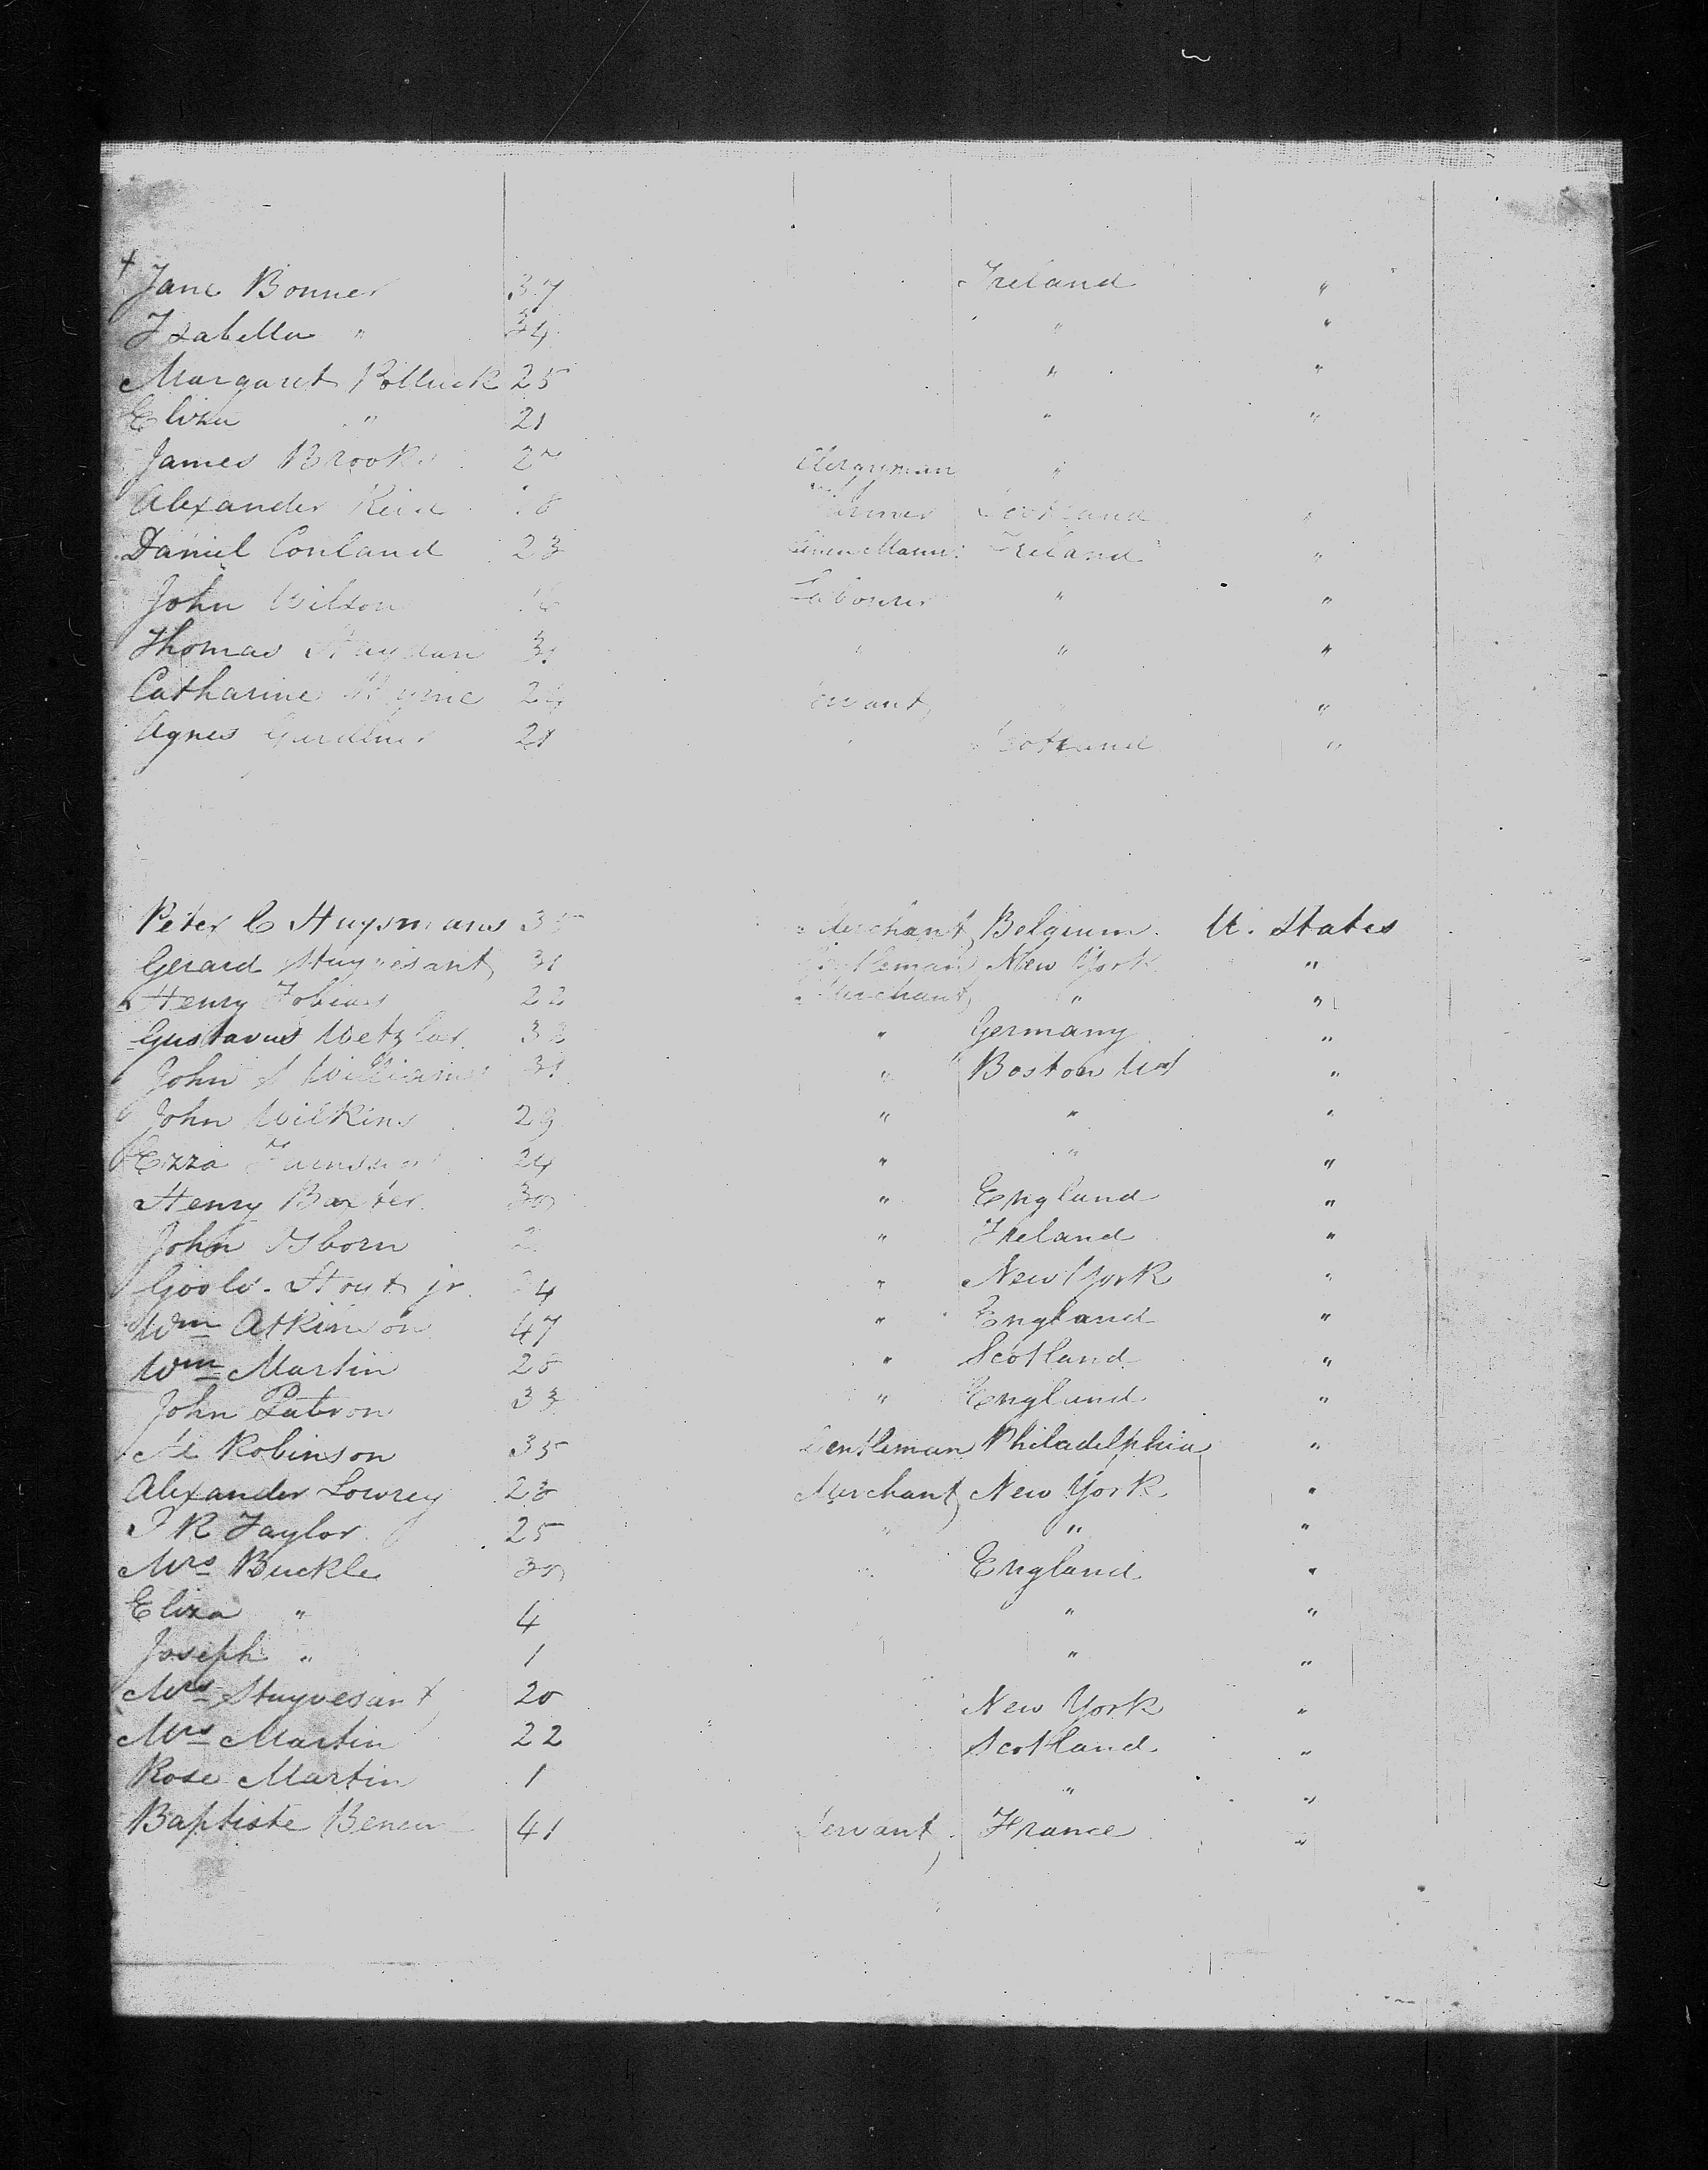 Jane Bonner 37 Ireland "
Isabella " 34 " "
Margaret Polluck 25 " "
Eliza " 21 " "
James Brooks Clergyman "
Alexander Reid Farmer Scotland "
Daniel Conland 23 Ireland "
John Wilson Labourer " "
Thomas 31 " " "
Catharine 24 Servant " "
Agnes Gardiner 21 " Scotland "
Peter C Huysmans 35 Merchant Belgium. U. States
Gerard Stuyvesant 31 Gentleman New York "
Henry Tobias 22 Merchant " "
Gustavus Wetzlar 32 " Germany "
John S Williams 31 " Boston "
John Wilkins 29 " " "
Ezza 24 " " "
Henry Baxter 30 " England "
John Osborn " Ireland "
Stout jr. 24 " New York "
Wm Atkinson 47 " England "
Wm Martin 28 " Scotland "
John Patron 33 " England "
Robinson 35 Gentleman Philadelphia "
Alexander Lowrey 28 Merchant New York "
R Taylor 25 " " "
Mrs Buckle 30 England "
Eliza " 4 " "
Joseph " 1 " "
Mrs Stuyvesant 20 New York "
Mrs Martin 22 Scotland "
Rose Martin 1 " "
Baptiste 41 Servant France "